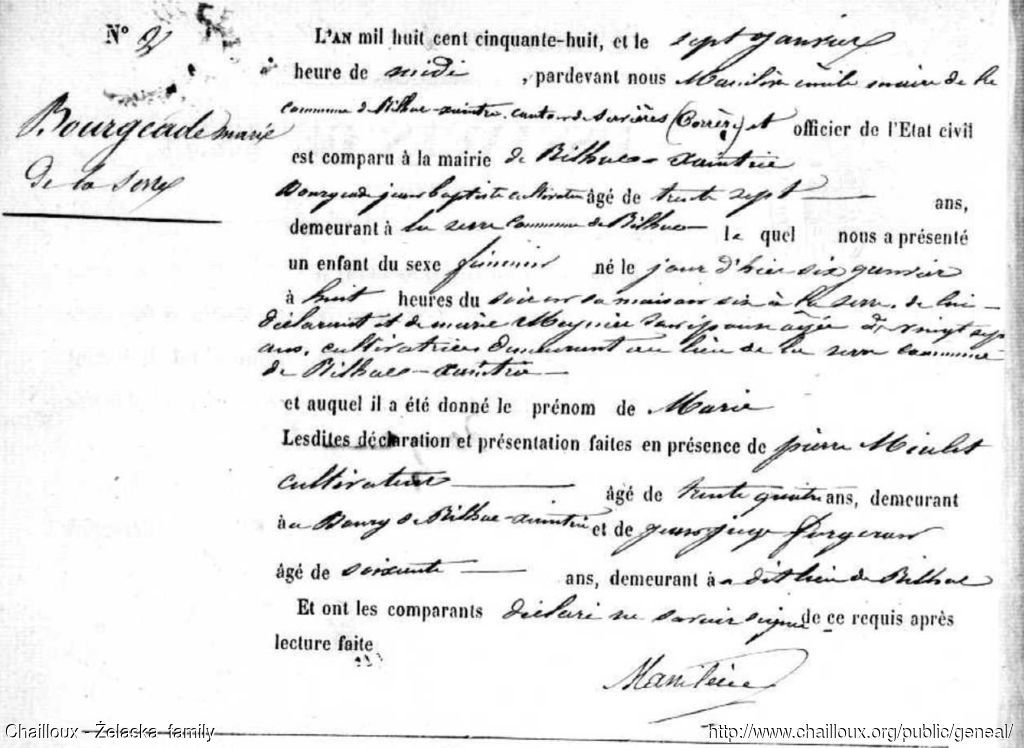 N° 2
Bourgeade marie
de la serre
L'AN mil huit cent cinquante-huit, et le sept janvier
heure de midi , pardevant nous émile maire de la
commune de Rilhac-xaintrie, canton de Servières (Corrèze) et officier de l'Etat civil
est comparu à la mairie de Rilhac-xaintrie
Bourgeade jean baptiste cultivateur âgé de trente sept ans,
demeurant à la serre commune de Rilhac le quel nous a présenté
un enfant du sexe féminin né le jour d'hier six janvier
à huit heures du soir en sa maison six à la serre, de lui
déclarant et de marie son épouse agée de vingt sept
ans, cultivatrice demeurant au lieu de la serre commune
de Rilhac-xaintrie
et auquel il a été donné le prénom de Marie
Lesdites déclaration et présentation faites en présence de pierre
cultivateur âgé de trente quatre ans, demeurant
à au Bourg de Rilhac-xaintrie et de
âgé de soixante ans, demeurant à a dit lieu de Rilhac
Et ont les comparants déclaré ne savoir signer de ce requis après
lecture faite
Chailloux - Żelacka family
http://www.chailloux.org/public/geneal/